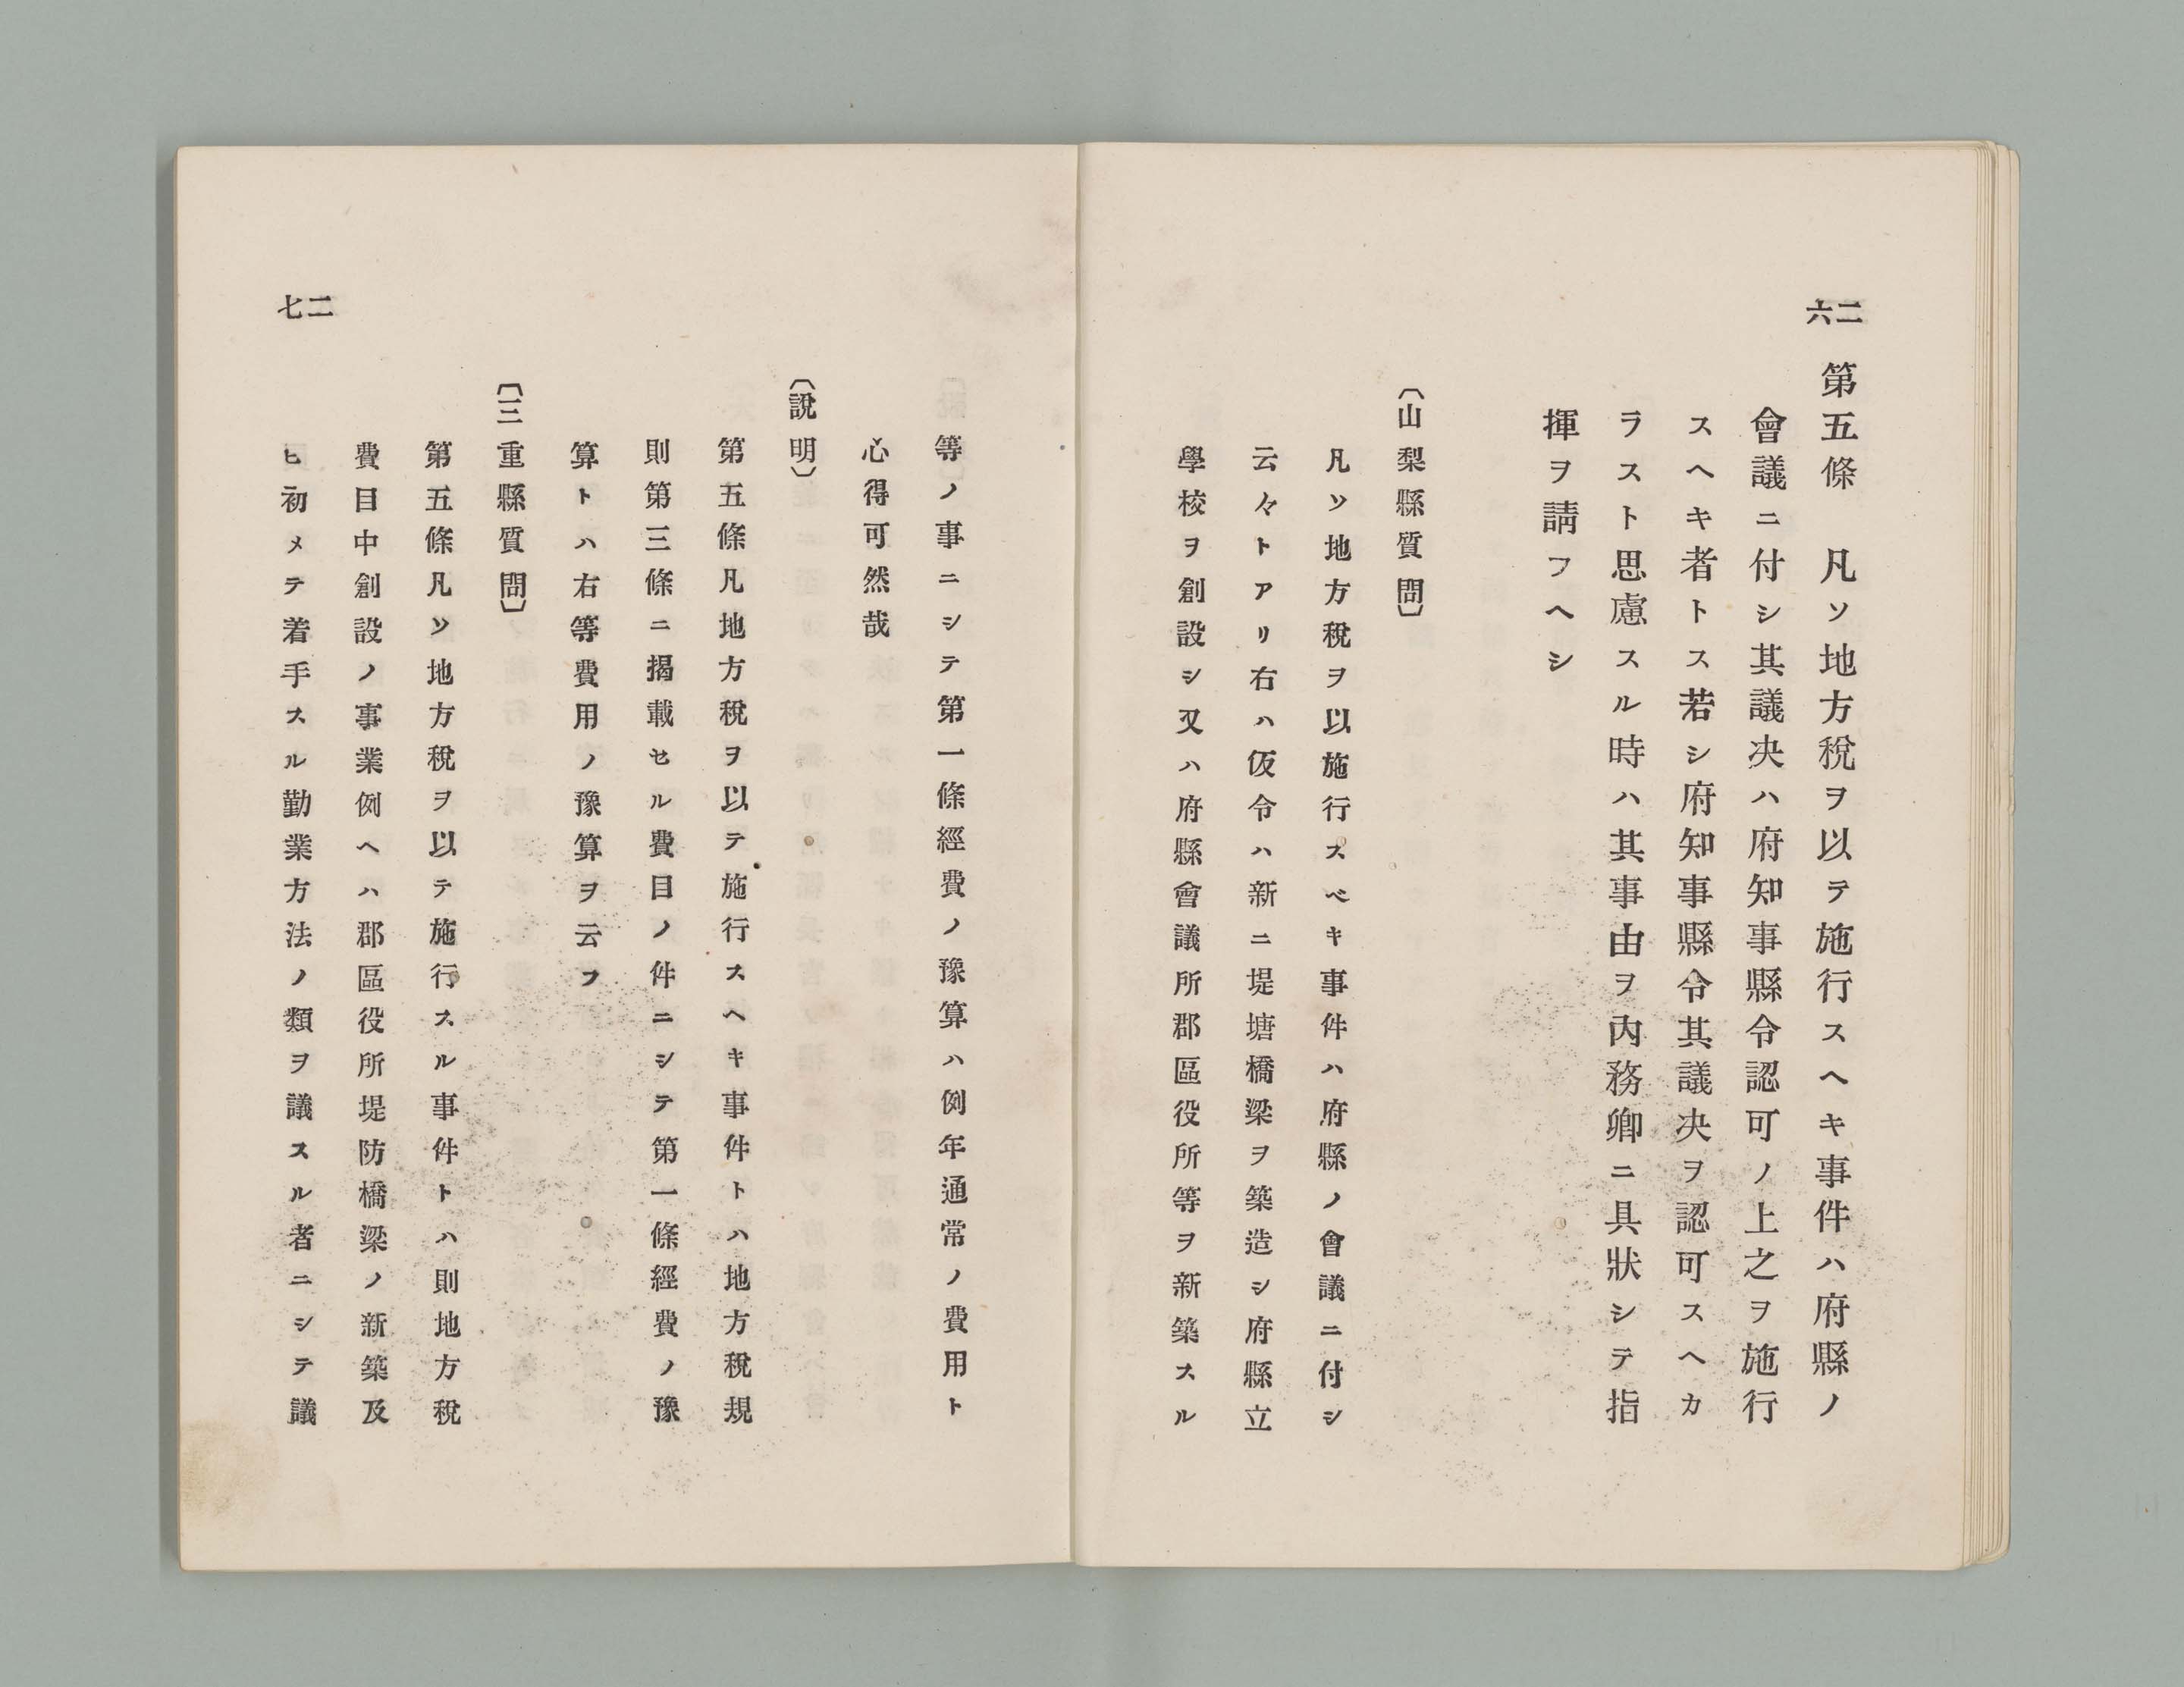 二六
第五條　凡ソ地方稅ヲ以テ施行スヘキ事件ハ府縣ノ
會議ニ付シ其議决ハ府知事縣令認可ノ上之ヲ施行
スヘキ者トス若シ府知事縣令其議决ヲ認可スヘカ
ラスト思慮スル時ハ其事由ヲ內務卿ニ具狀シテ指
揮ヲ請フヘシ
〔山梨縣質問〕
凡ソ地方稅ヲ以施行スベキ事件ハ府縣ノ會議ニ付シ
云々トアリ右ハ仮令ハ新ニ堤塘橋梁ヲ築造シ府縣立
學校ヲ創設シ又ハ府縣會議所郡區役所等ヲ新築スル
二七
等ノ事ニシテ第一條經費ノ豫算ハ例年通常ノ費用ト
心得可然哉
〔說明〕
第五條凡地方稅ヲ以テ施行スヘキ事件トハ地方稅規
則第三條ニ揭載セル費目ノ件ニシテ第一條經費ノ豫
算トハ右等費用ノ豫算ヲ云フ
〔三重縣質問〕
第五條凡ソ地方稅ヲ以テ施行スル事件トハ則地方稅
費目中創設ノ事業例ヘハ郡區役所堤防橋梁ノ新築及
ヒ初メテ着手スル勸業方法ノ類ヲ議スル者ニシテ議